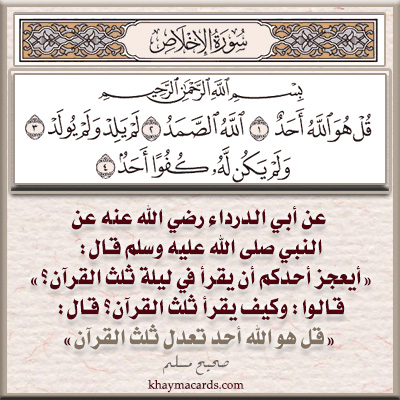 سُورَةُ الإِخْلَاصِ
بِسْمِ اللَّهِ الرَّحْمَٰنِ الرَّحِيمِ
قُلْ هُوَ اللَّهُ أَحَدٌ ١ اللَّهُ الصَّمَدُ ٢ لَمْ يَلِدْ وَلَمْ يُولَدْ ٣
وَلَمْ يَكُن لَّهُ كُفُوًا أَحَدٌ ٤
عن أبي الدرداء رضي الله عنه عن
النبي صلى الله عليه وسلم قال :
« أيعجز أحدكم أن يقرأ في ليلة ثلث القرآن؟ »
قالوا : وكيف يقرأ ثلث القرآن؟ قال :
« قل هو الله أحد تعدل ثلث القرآن »
صحيح مسلم
khaymacards.com